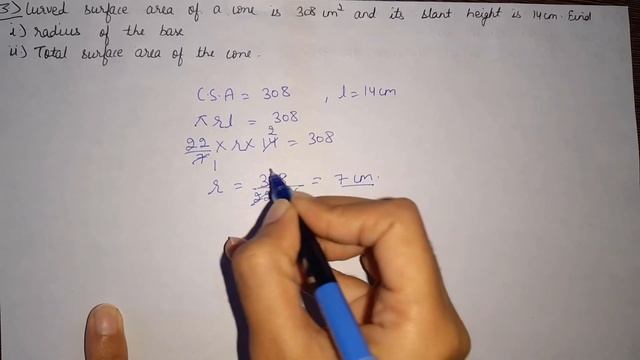 3) Curved surface area of a cone is 308 cm² and its slant height is 14 cm. Find
i) radius of the base
ii) Total surface area of the cone.
C.S.A = 308 , l = 14 cm
π r l = 308
22/7 × r × 14 = 308
2
1
r = = 7 cm.